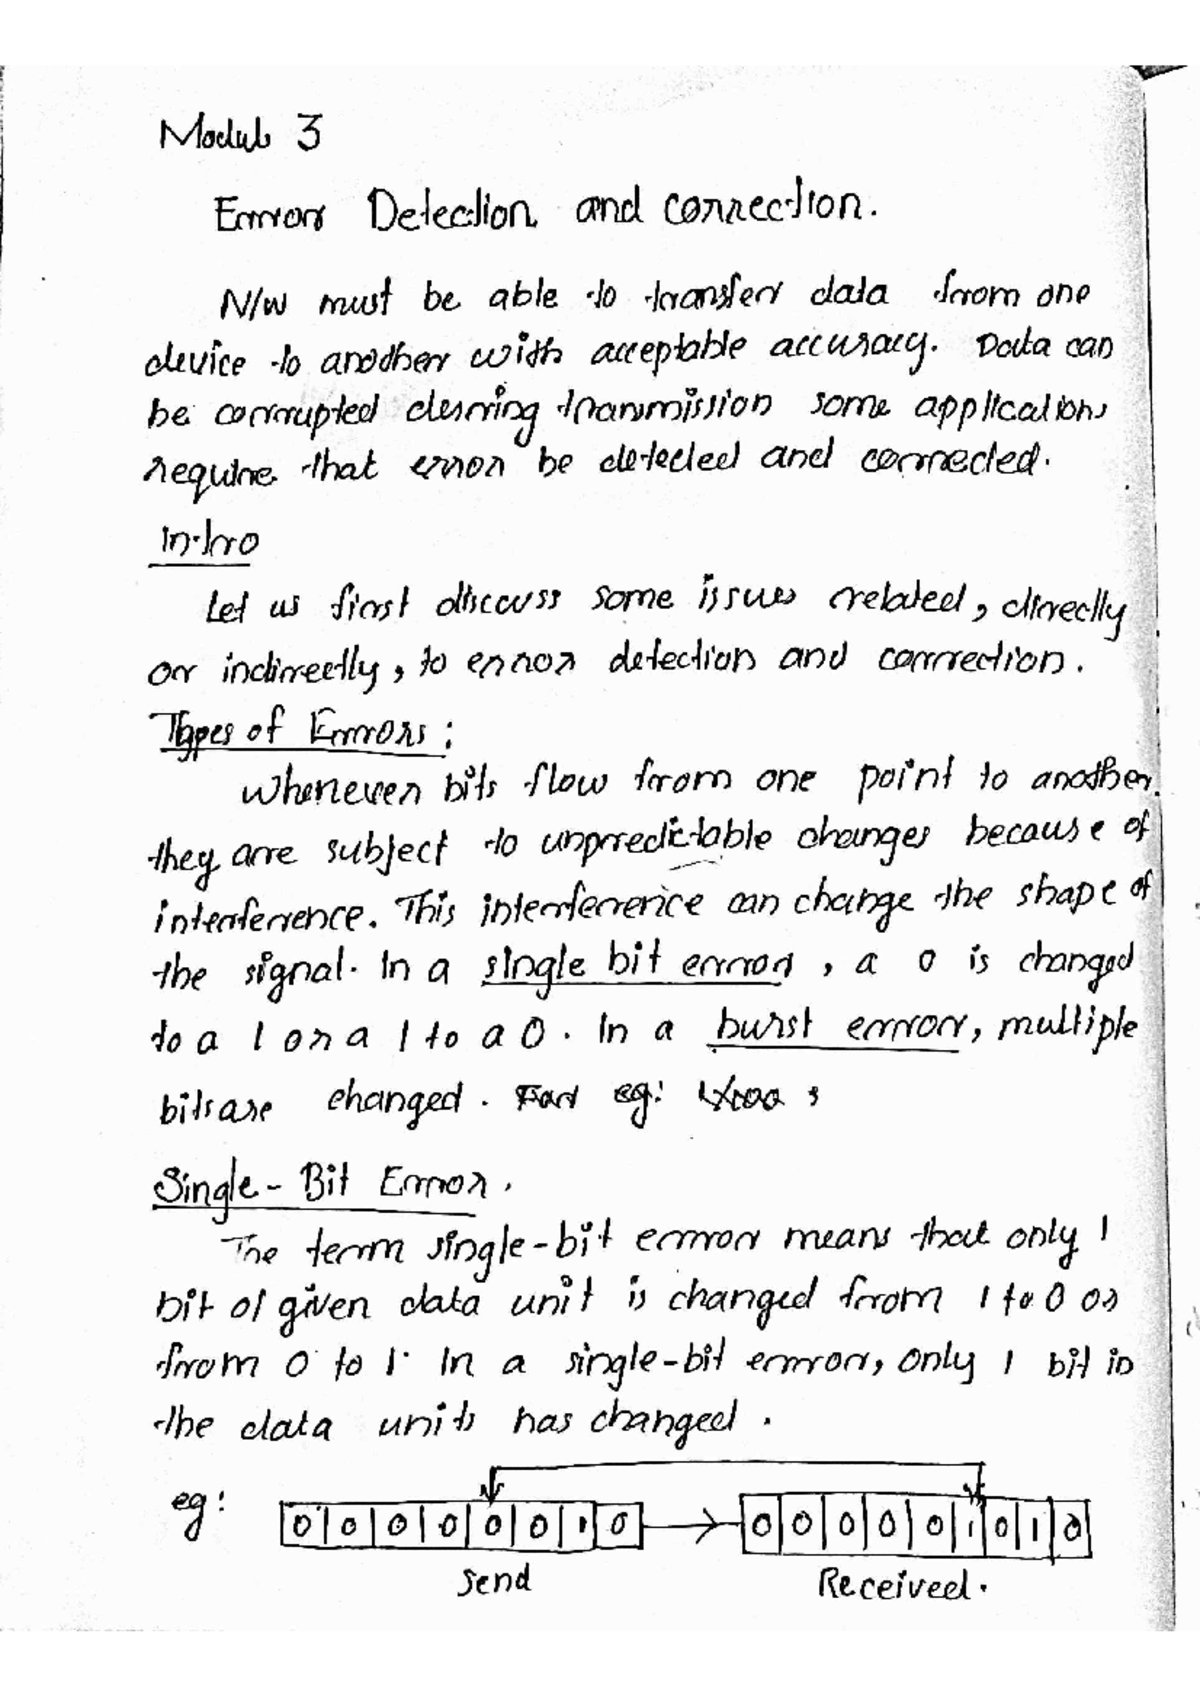 Module 3
Error Detection and correction.
N/w must be able to transfer data from one
device to another with acceptable accuracy. Data can
be corrupted during transmission some applications
require that error be detected and corrected.
Intro
Let us first discuss some issues related, directly
or indirectly, to error detection and correction.
Types of Errors:
Whenever bits flow from one point to another
they are subject to unpredictable changes because of
interference. This interference can change the shape of
the signal. In a single bit error, a 0 is changed
to a 1 or a 1 to a 0. In a burst error, multiple
bits are changed. For eg:
Single-Bit Error.
The term single-bit error means that only 1
bit of given data unit is changed from 1 to 0 or
from 0 to 1. In a single-bit error, only 1 bit in
the data units has changed.
eg: 0 0 0 0 0 0 1 0 → 0 0 0 0 0 1 0 1 0
Send Received.